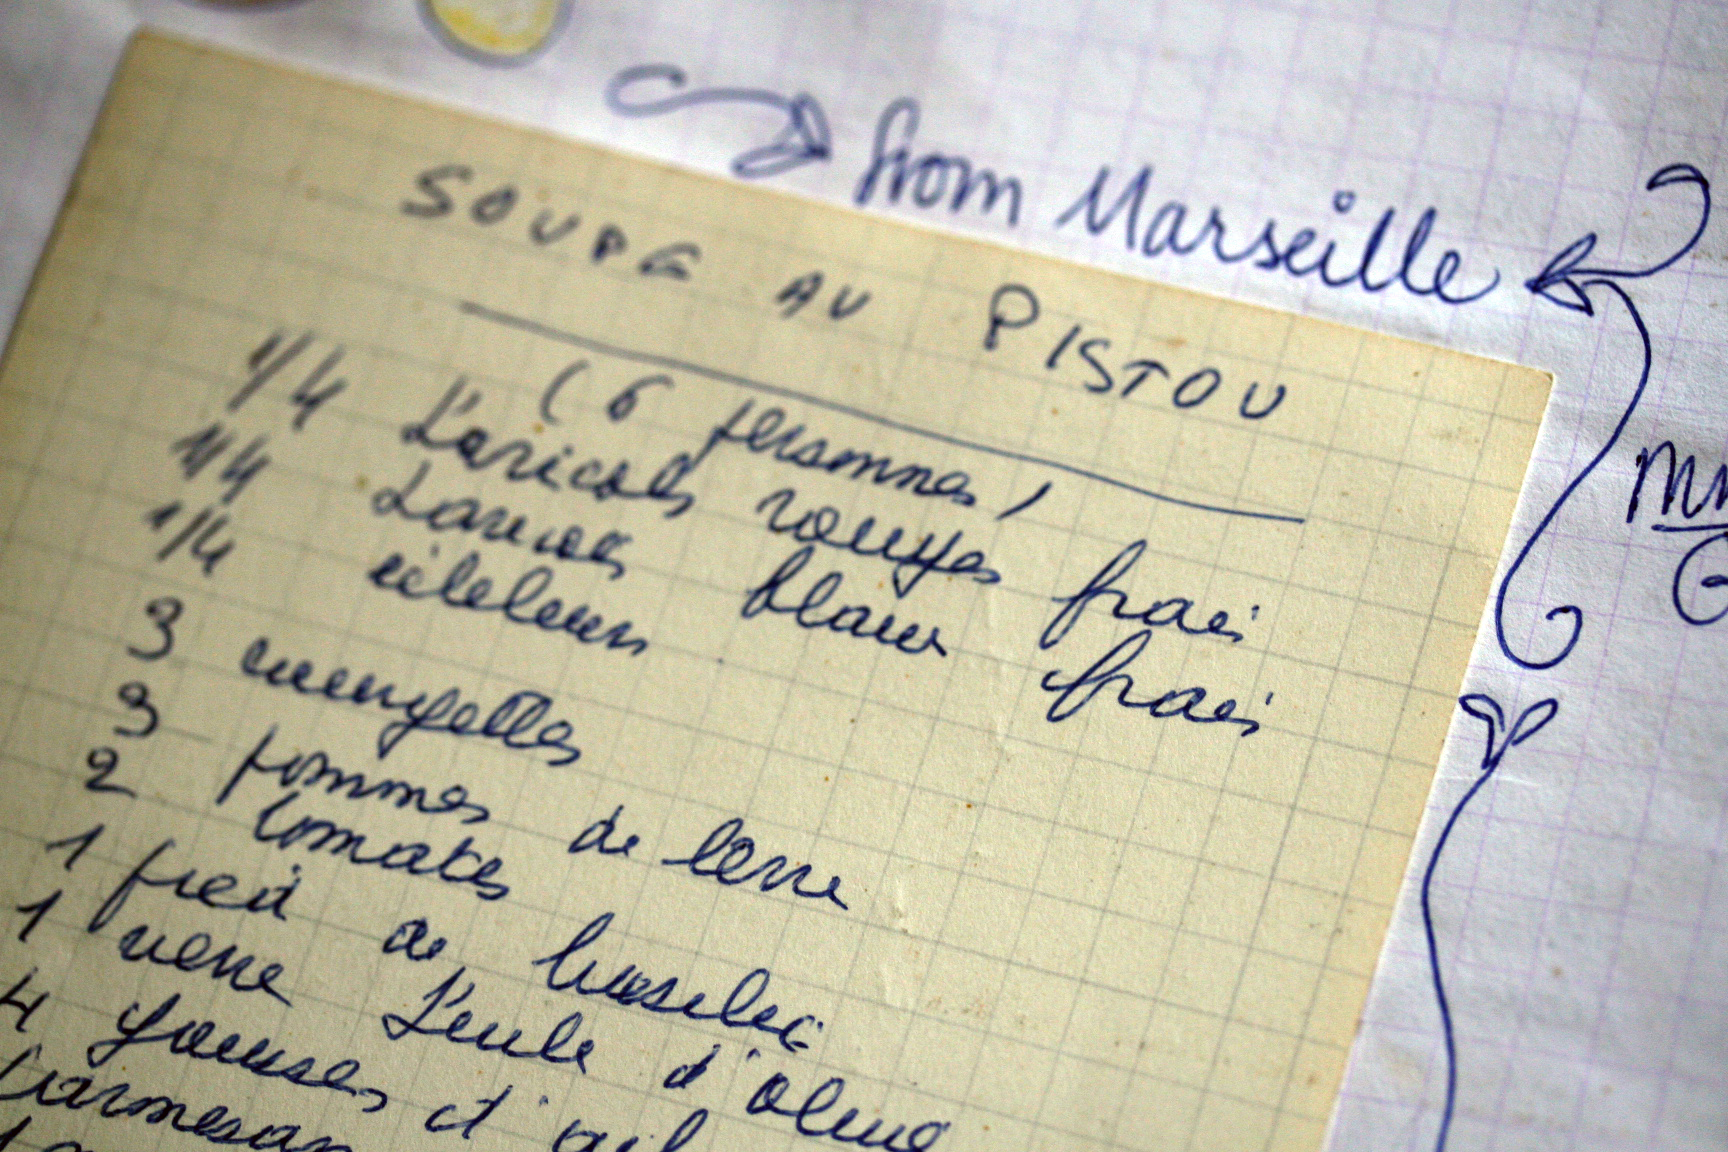 from Marseille
SOUPE AU PISTOU
( 6 personnes )
1/4 haricots rouges frais
1/4 haricots blancs frais
1/4
3 courgettes
3 pommes de terre
2 tomates
1 pied de basilic
1 verre huile d'olive
4 gousses d'ail
parmesan